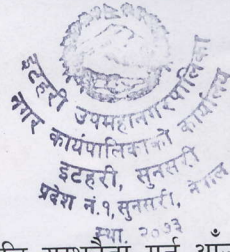 इटहरी उपमहानगरपालिका
नगर कार्यपालिकाको कार्यालय
इटहरी, सुनसरी
प्रदेश नं.१,सुनसरी, नेपाल
स्था. २०३३